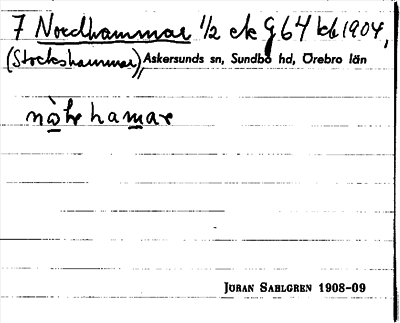 7 Nordhammar 1/2 ek G 64 kb 1904,
(Stockshammar), Askersunds sn, Sundbo hd, Örebro län
nòhr hamar
JÖRAN SAHLGREN 1908-09